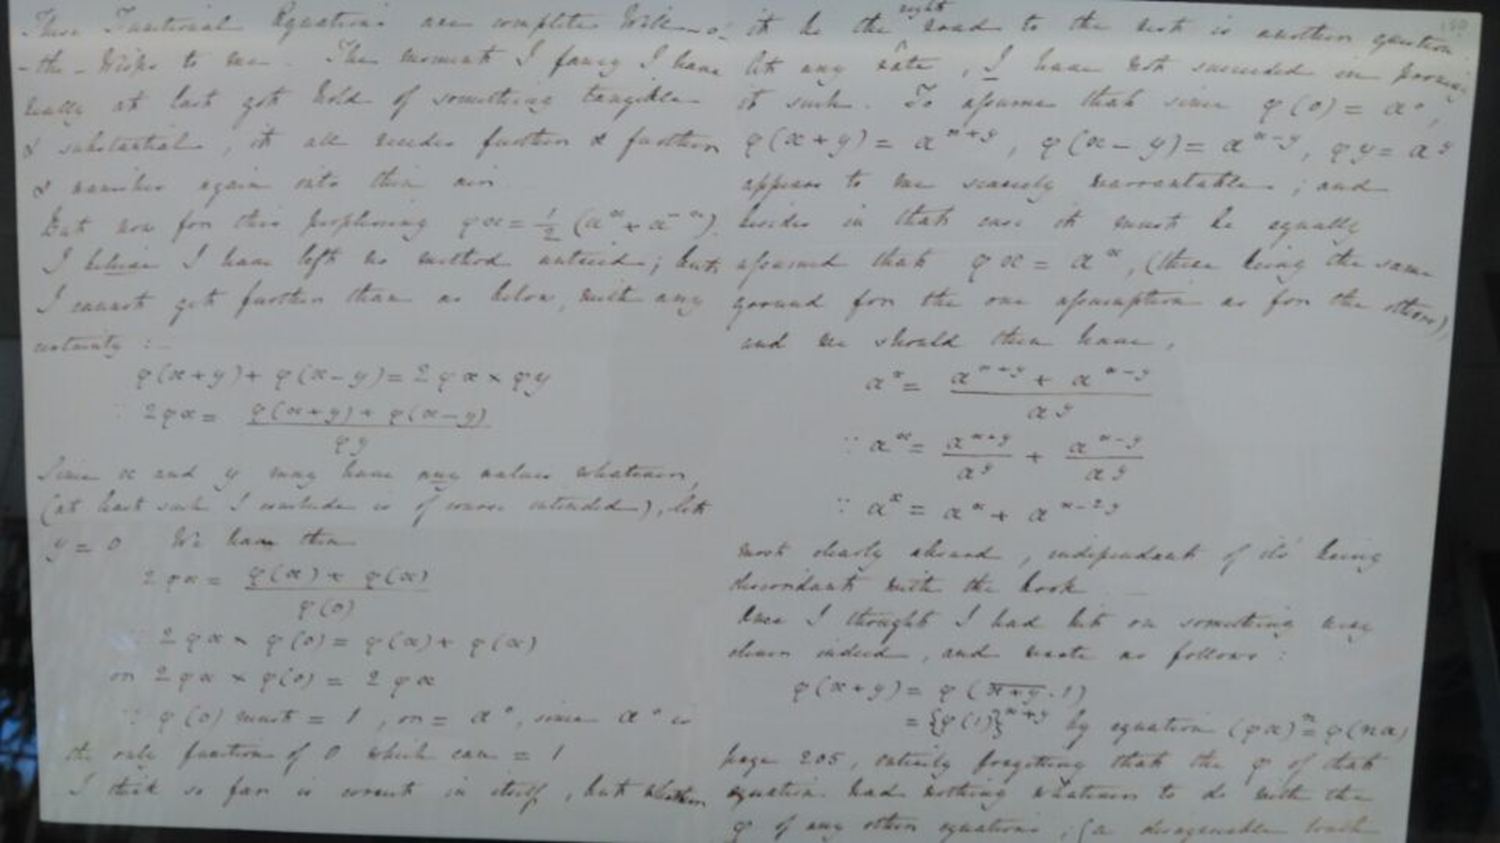 These Functional Equations are complete Will-o-
-the-Wisps to me. The moment I fancy I have
really at last got hold of something tangible
& substantial, it all recedes further & further
& vanishes again into thin air.
But now for this perplexing φx = 1/2 (aˣ + a⁻ˣ).
I believe I have left no method untried; but
I cannot get further than as below, with any
certainty :-
φ(x+y) + φ(x-y) = 2φx × φy
∵ 2φx = φ(x+y) + φ(x-y) / φy
Since x and y may have any values whatever,
(at least such I conclude is of course intended), let
y = 0 We have then
2φx = φ(x) + φ(x) / φ(0)
∵ 2φx × φ(0) = φ(x) + φ(x)
or 2φx × φ(0) = 2φx
∵ φ(0) must = 1, or = a⁰, since a⁰ is
the only function of 0 which can = 1
I think so far is correct in itself, but whether
150
it be the right road to the rest is another question
At any rate, I have not succeeded in proving
it such. To assume that since φ(0) = a⁰,
φ(x+y) = aˣ⁺ʸ, φ(x-y) = aˣ⁻ʸ, φy = aʸ
appears to me scarcely warrantable; and
besides in that case it must be equally
assumed that φx = aˣ, (there being the same
ground for the one assumption as for the others)
and we should then have,
aˣ = aˣ⁺ʸ + aˣ⁻ʸ / aʸ
∵ aˣ = aˣ⁺ʸ / aʸ + aˣ⁻ʸ / aʸ
∵ aˣ = aˣ + aˣ⁻²ʸ
most clearly absurd, independant of its' being
discordant with the book.
Once I thought I had hit on something very
clever indeed, and wrote as follows:
φ(x+y) = φ(x+y . 1)
= {φ(1)}ˣ⁺ʸ by equation (φa)ⁿ = φ(na)
page 205, entirely forgetting that the φ of that
equation had nothing whatever to do with the
φ of any other equations; (a disagreeable truth